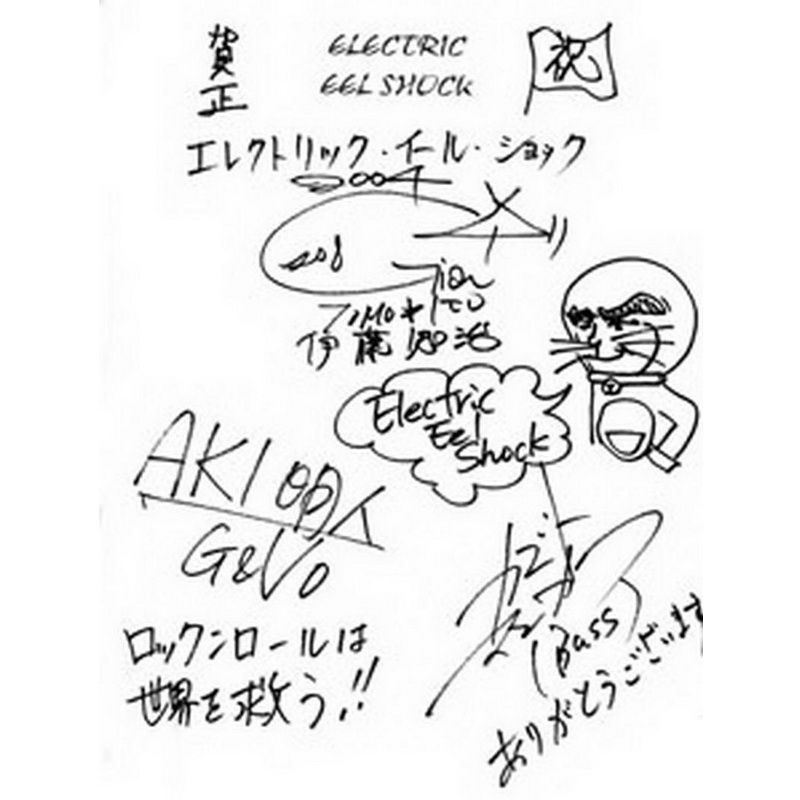 賀正
ELECTRIC
EEL SHOCK
祝
エレクトリック・イール・ショック
2004
Gian
ITO
伊藤
Electric
Eel
Shock
AKI
G&Vo
(Bass)
ロックンロールは
世界を救う!!
ありがとうございます